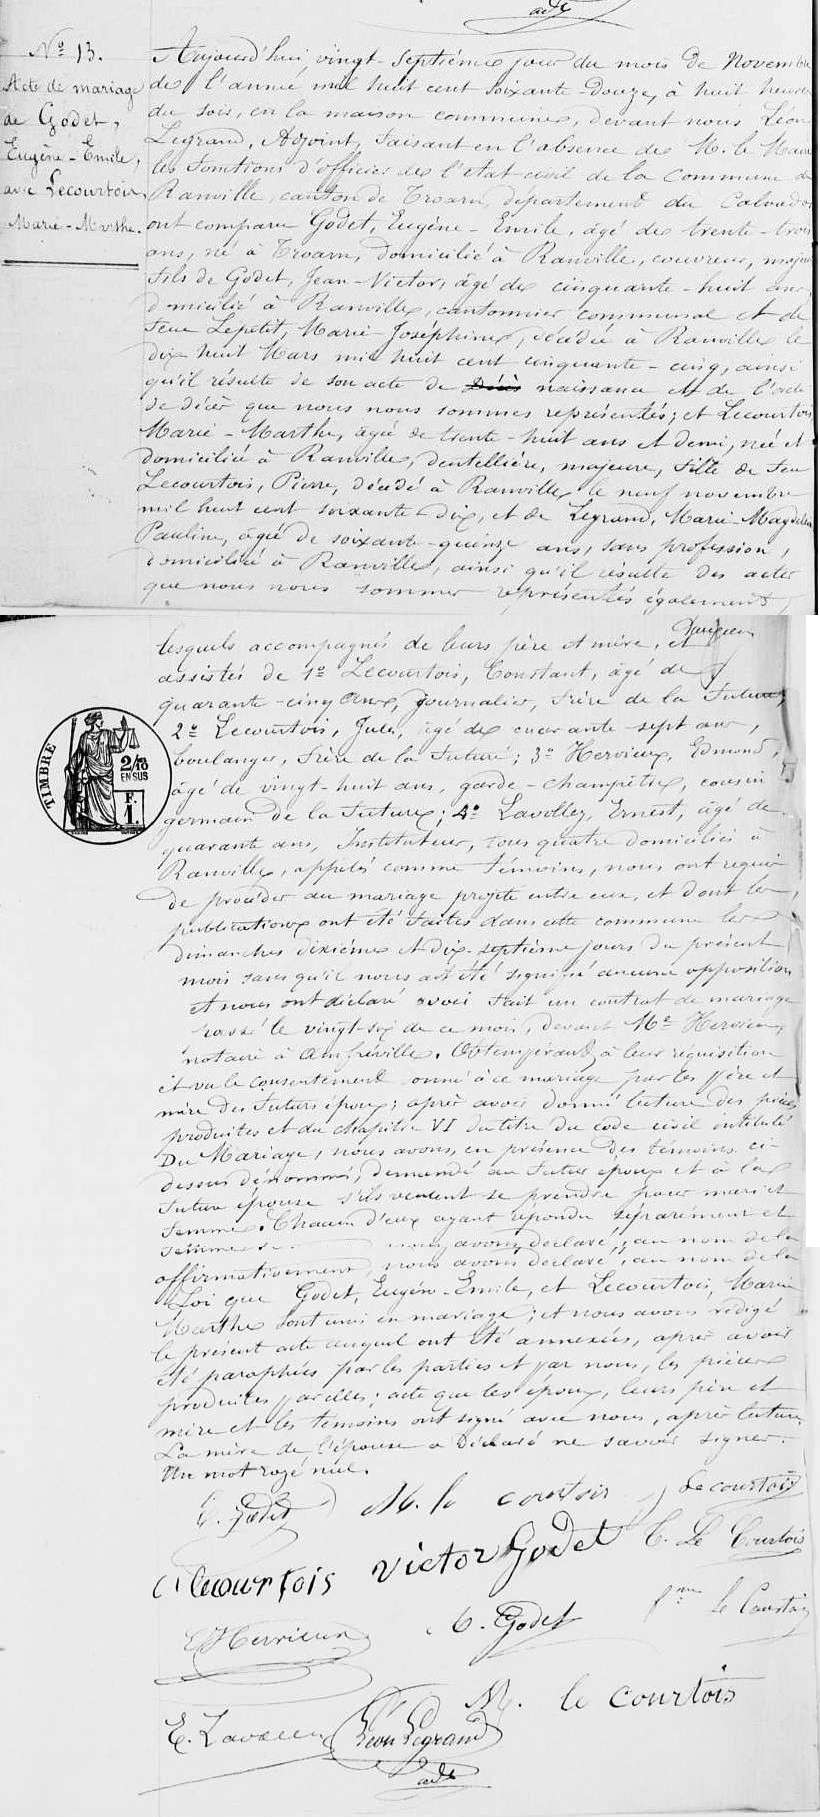 adjt
Nº 13.
Acte de mariage
de Godet,
Eugène-Emile,
avec Lecourtois
Marie-Marthe.
Aujourd'hui vingt-septième jour du mois de Novembre
de l'année mil huit cent soixante-Douze, à huit heures
du soir, en la maison commune, devant nous Léon
Legrand, Adjoint, faisant en l'absence de M. le Maire
les fonctions d'officier de l'état civil de la Commune de
Ranville, canton de Troarn, département du Calvados
ont comparu Godet, Eugène-Emile, âgé de trente-trois
ans, né à Troarn, domicilié à Ranville, couvreur, majeur
fils de Godet, Jean-Victor, âgé de cinquante-huit ans,
domicilié à Ranville, cantonnier communal et de
feue Lepetit, Marie-Joséphine, décédée à Ranville le
dix huit Mars mil huit cent cinquante-cinq, ainsi
qu'il résulte de son acte de décès naissance et de l'acte
de décès que nous nous sommes représentés; et Lecourtois
Marie-Marthe, âgée de trente-huit ans et demi, née et
domiciliée à Ranville, dentellière, majeure, fille de feu
Lecourtois, Pierre, décédé à Ranville le neuf novembre
mil huit cent soixante dix, et de Legrand, Marie-Magdeleine
Pauline, âgée de soixante-quinze ans, sans profession,
domiciliée à Ranville, ainsi qu'il résulte des actes
que nous nous sommes représentés également,
lesquels accompagnés de leurs père et mère, et
assistés de 1º Lecourtois, Constant, âgé de
quarante-cinq ans, journalier, frère de la future,
2º Lecourtois, Jules, âgé de quarante-sept ans,
boulanger, frère de la future; 3º Hervieux, Edmond,
âgé de vingt-huit ans, garde-champêtre, cousin
germain de la future; 4º Lavolley, Ernest, âgé de
quarante ans, Instituteur, tous quatre domiciliés à
Ranville, appelés comme témoins, nous ont requis
de procéder au mariage projeté entre eux, et dont les
publications ont été faites dans cette commune les
dimanches dixième et dix-septième jours du présent
mois sans qu'il nous ait été signifié aucune opposition
et nous ont déclaré avoir fait un contrat de mariage
passé le vingt-six de ce mois, devant Mº Hervieu,
notaire à Amfréville. Obtempérant à leur réquisition
et vu le consentement donné à ce mariage par les père et
mère des futurs époux; après avoir donné lecture des pièces
produites et du chapitre VI du titre du code civil intitulé
Du Mariage, nous avons, en présence des témoins ci-
dessus dénommés, demandé au futur époux et à la
future épouse s'ils veulent se prendre pour mari et
femme. Chacun d'eux ayant répondu séparément et
affirmativement, nous avons déclaré, au nom de la
Loi que Godet, Eugène-Emile, et Lecourtois, Marie
Marthe sont unis en mariage; et nous avons rédigé
le présent acte auquel ont été annexées, après avoir
été paraphées par les parties et par nous, les pièces
produites par elles; acte que les époux, leurs père et
mère et les témoins ont signé avec nous, après lecture.
La mère de l'épouse a déclaré ne savoir signer.
Un mot rayé nul.
TIMBRE
2/10
EN SUS
F.
1.
E. Godet M. le courtois Lecourtois
lecourtois Victor Godet C. Le Courtois
E Hervieux C. Godet le Courtois
M. le courtois
E. Lavolley Léon Legrand
adjt